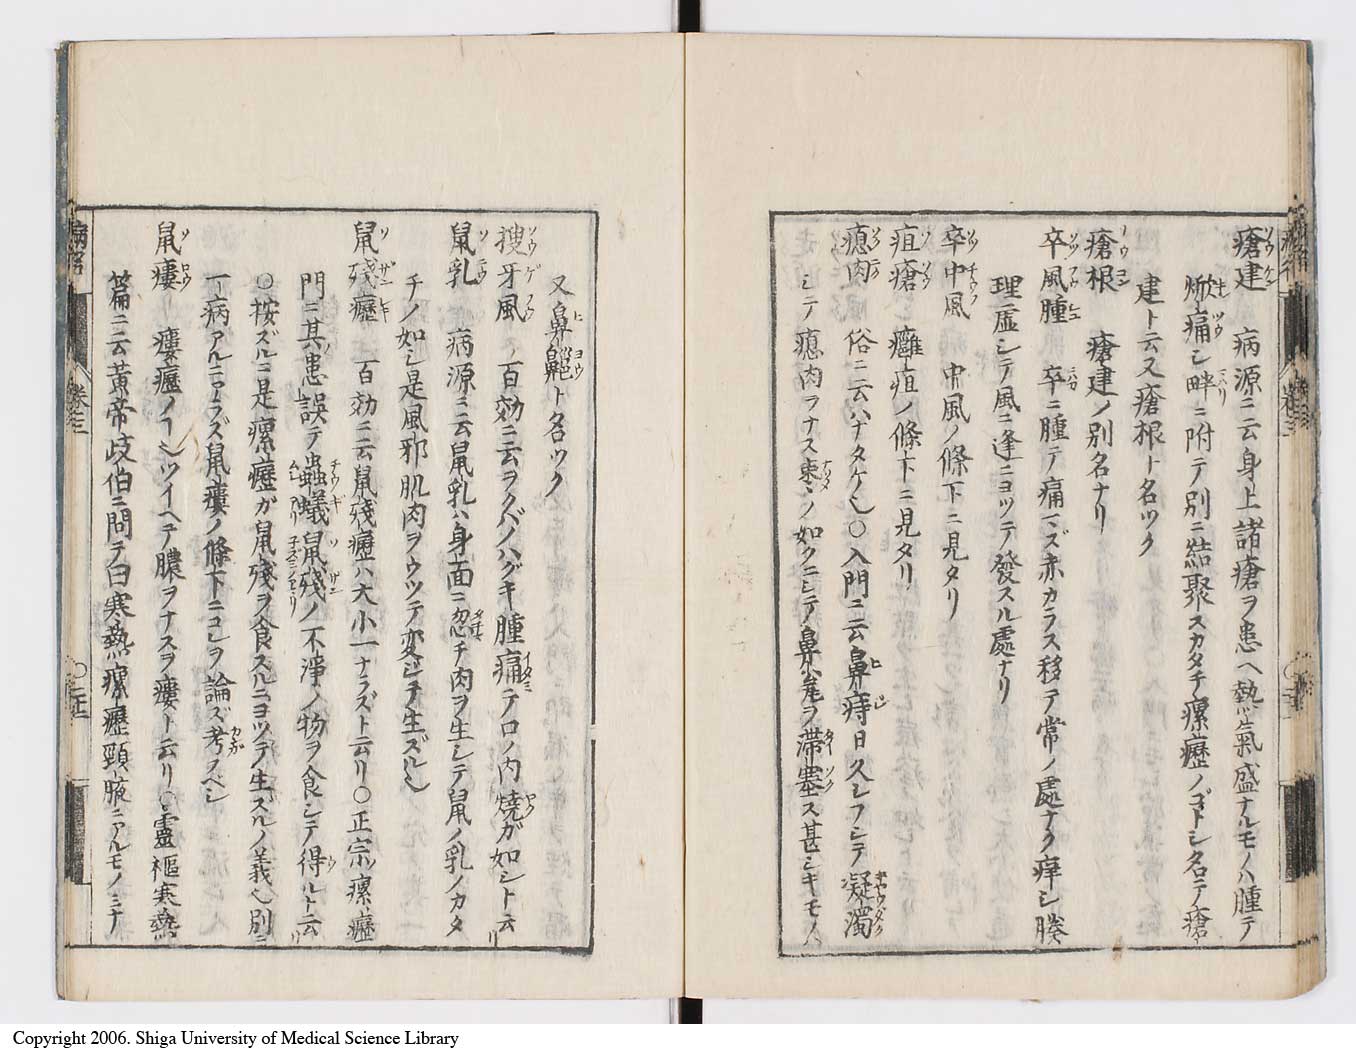 瘡建 病源ニ云身上諸瘡ヲ患ヘ熱氣盛ナルモノハ腫テ
焮痛シ畔ニ附テ別ニ結聚スカタチ瘰癧ノゴトシ名テ瘡
建ト云又瘡根ト名ツク
瘡根 瘡建ノ別名ナリ
卒風腫 卒ニ腫テ痛マズ赤カラス移テ常ノ處ナク痒シ腠
理虚シテ風ニ逢ニヨツテ發スル處ナリ
卒中風 中風ノ條下ニ見タリ
疽瘡 癰疽ノ條下ニ見タリ
瘜肉 俗ニ云ハナタケ也〇入門ニ云鼻痔日久シフシテ凝濁
シテ瘜肉ヲナス棗ノ如クニシテ鼻竅ヲ滞塞ス甚シキモノハ
又鼻齆ト名ツク
搜牙風 百効ニ云ヲクバノハグキ腫痛テ口ノ内燒ガ如シト云リ
鼠乳 病源ニ云鼠乳ハ身面ニ忽チ肉ヲ生シテ鼠ノ乳ノカタ
チノ如シ是風邪肌肉ヲウツテ変ジテ生ズル也
鼠殘癧 百効ニ云鼠殘癧ハ大小一ナラズト云リ〇正宗瘰癧
門ニ其患誤テ蟲蟻鼠殘ノ不淨ノ物ヲ食シテ得ルト云リ
〇按ズルニ是瘰癧ガ鼠殘ヲ食スルニヨツテ生スルノ義也別ニ
一病アルニアラズ鼠瘻ノ條下ニコレヲ論ズ考フベシ
鼠瘻 瘻癧ノ ツイヘテ膿ヲナスヲ瘻ト云リ〇靈樞寒熱
篇ニ云黄帝岐伯ニ問テ曰寒熱瘰癧頸腋ニアルモノミナ
卷之三
卷之三
Copyright 2006. Shiga University of Medical Science Library